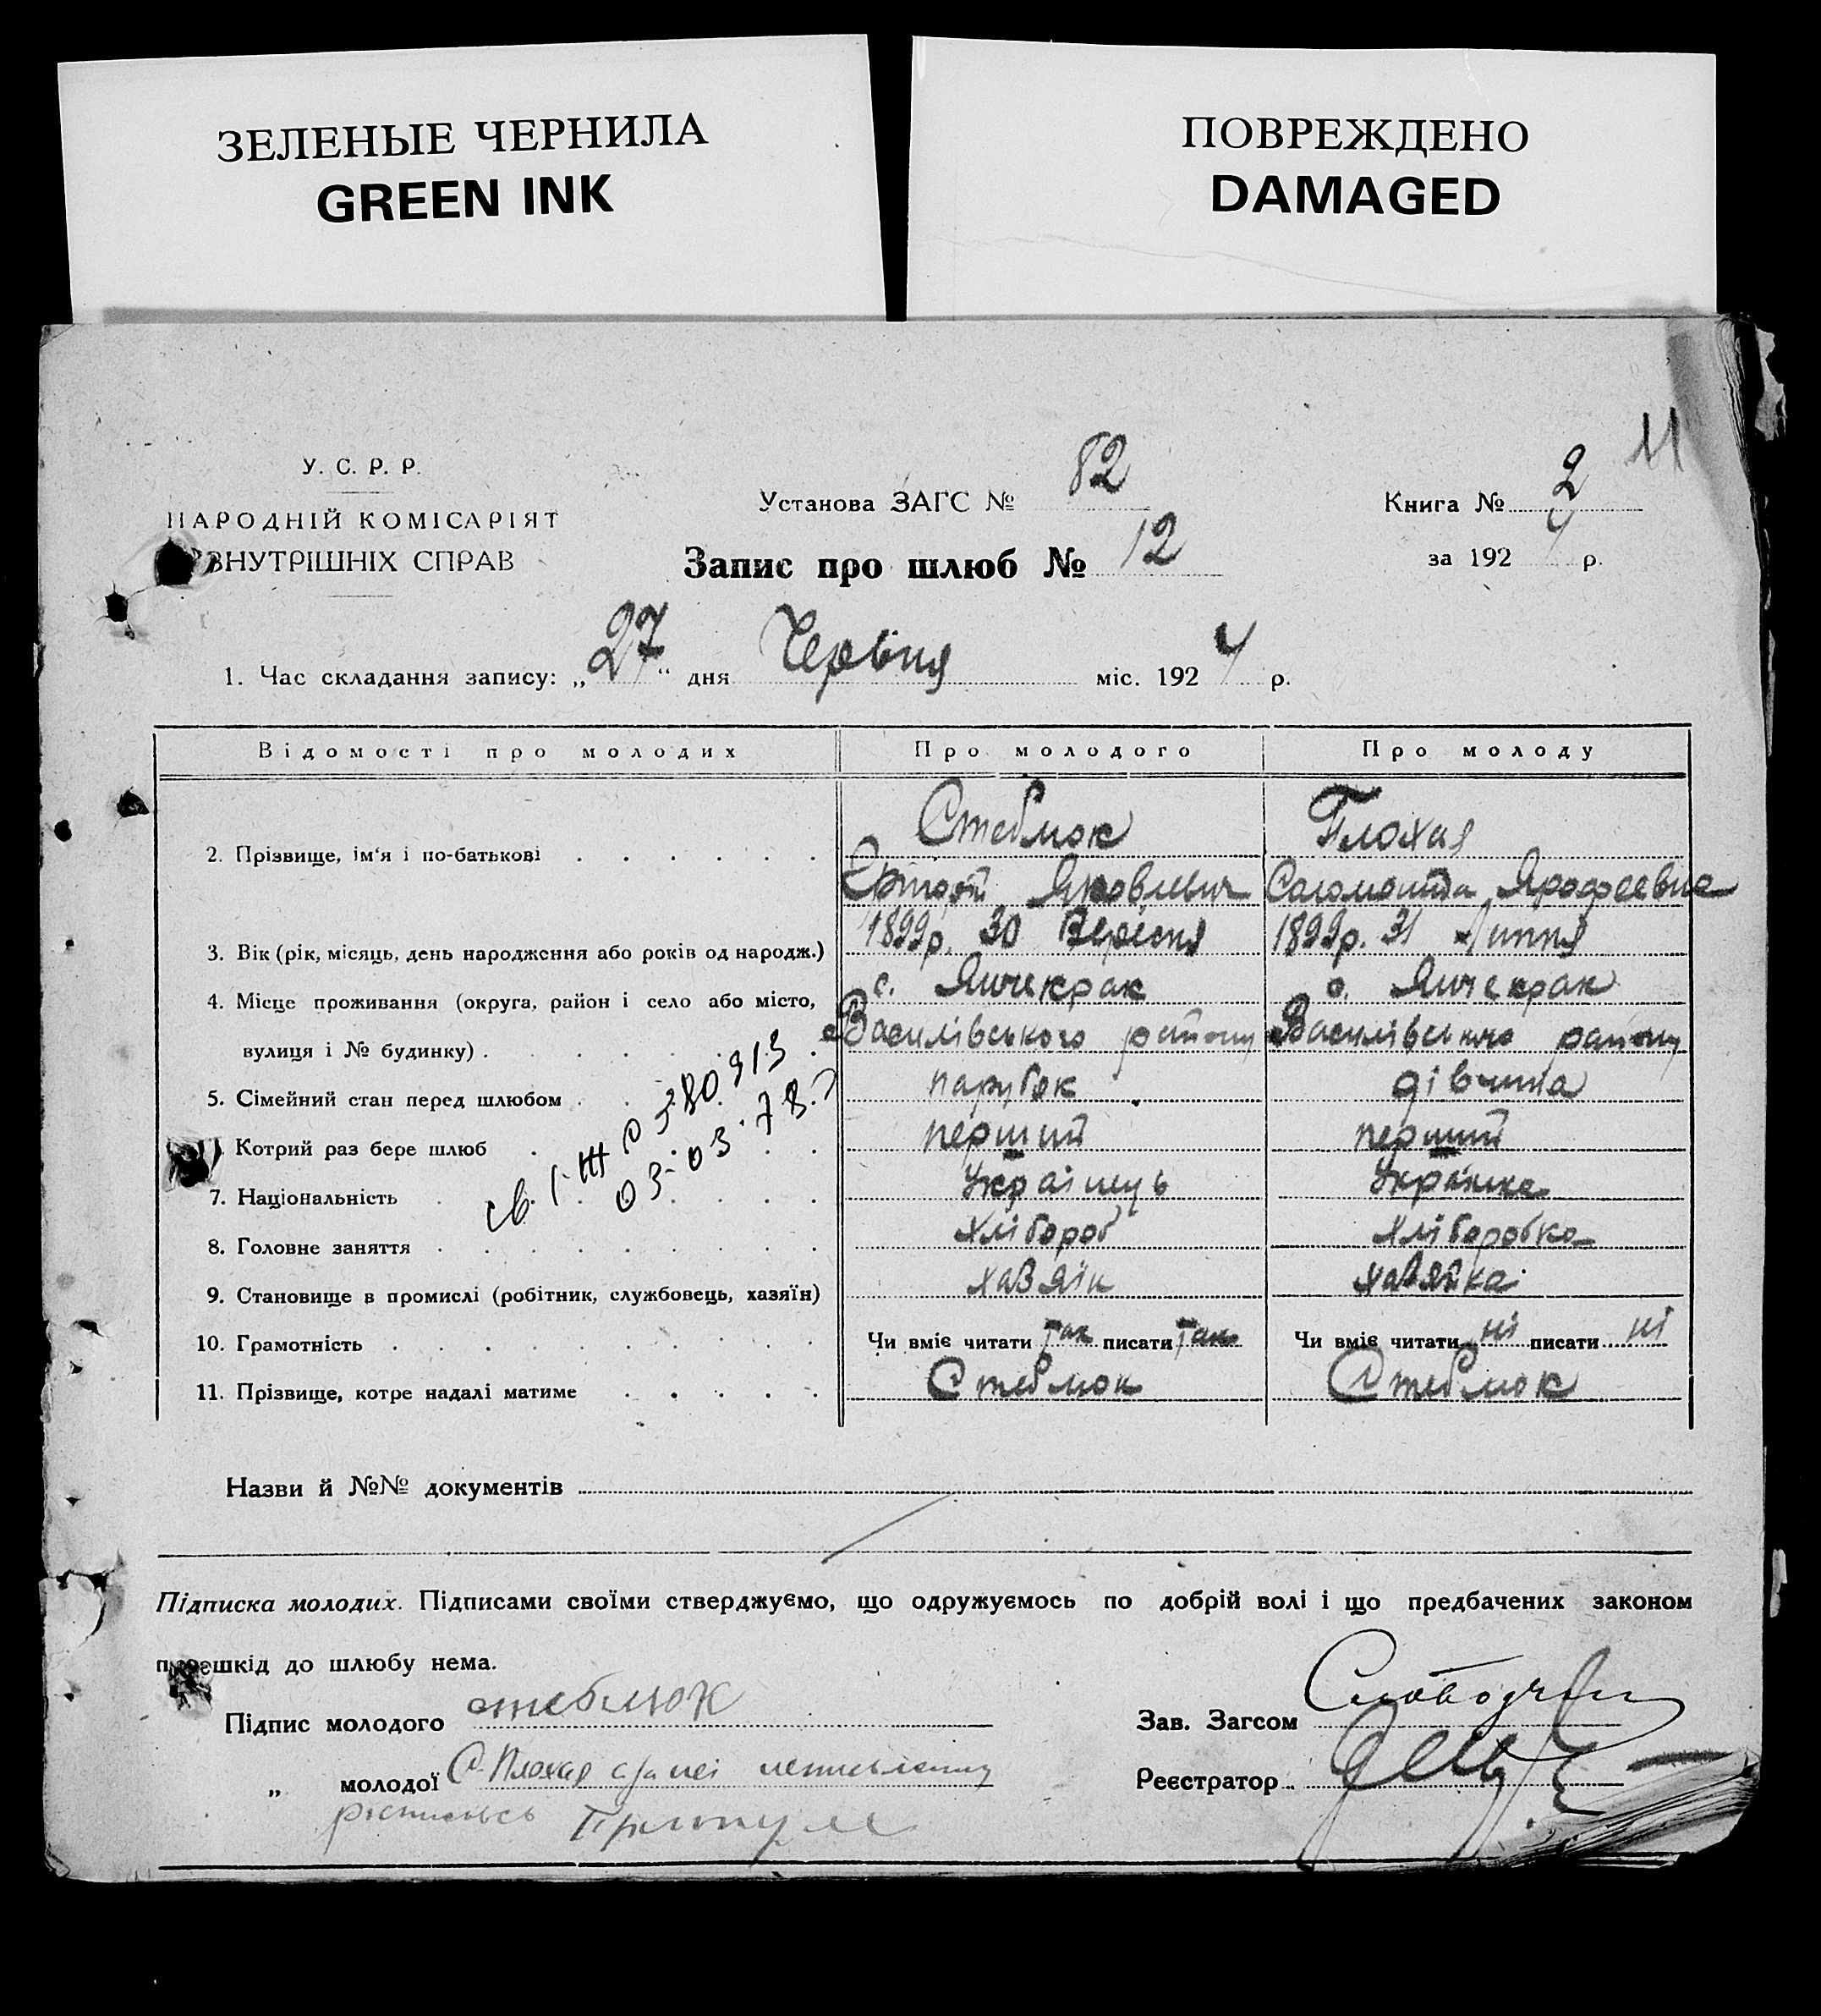 ЗЕЛЕНЫЕ ЧЕРНИЛА
GREEN INK
ПОВРЕЖДЕНО
DAMAGED
11
У. С. Р. Р.
НАРОДНІЙ КОМІСАРІЯТ
ВНУТРІШНІХ СПРАВ
Установа ЗАГС № 82
Запис про шлюб № 12
Книга № 2
за 1924 р.
1. Час складання запису: „27“ дня Червня міс. 1924 р.
Відомості про молодих Про молодого Про молоду
2. Прізвище, ім'я і по-батькові Стеблюк Плохая
Яковлевич Соломонида Ярофеевна
3. Вік (рік, місяць, день народження або років од народж.) 1899р. 30 Вересня 1899р. 31 Липня
4. Місце проживання (округа, район і село або місто, с. Янчекрак с. Янчекрак
вулиця і № будинку) Василівського району Василівського району
5. Сімейний стан перед шлюбом парубок дівчина
Котрий раз бере шлюб перший перший
7. Національність Українець Українка
8. Головне заняття хлібороб хліборобка
9. Становище в промислі (робітник, службовець, хазяїн) хазяїн хазяйка
10. Грамотність Чи вміє читати так писати так Чи вміє читати ні писати ні
11. Прізвище, котре надалі матиме Стеблюк Стеблюк
св. І-ЖС 0380913
03.03.78.
Назви й №№ документів
Підписка молодих. Підписами своїми стверджуємо, що одружуємось по добрій волі і що предбачених законом
перешкід до шлюбу нема.
Підпис молодого стеблюк
Зав. Загсом
„ молодої С. Плохая
Реєстратор